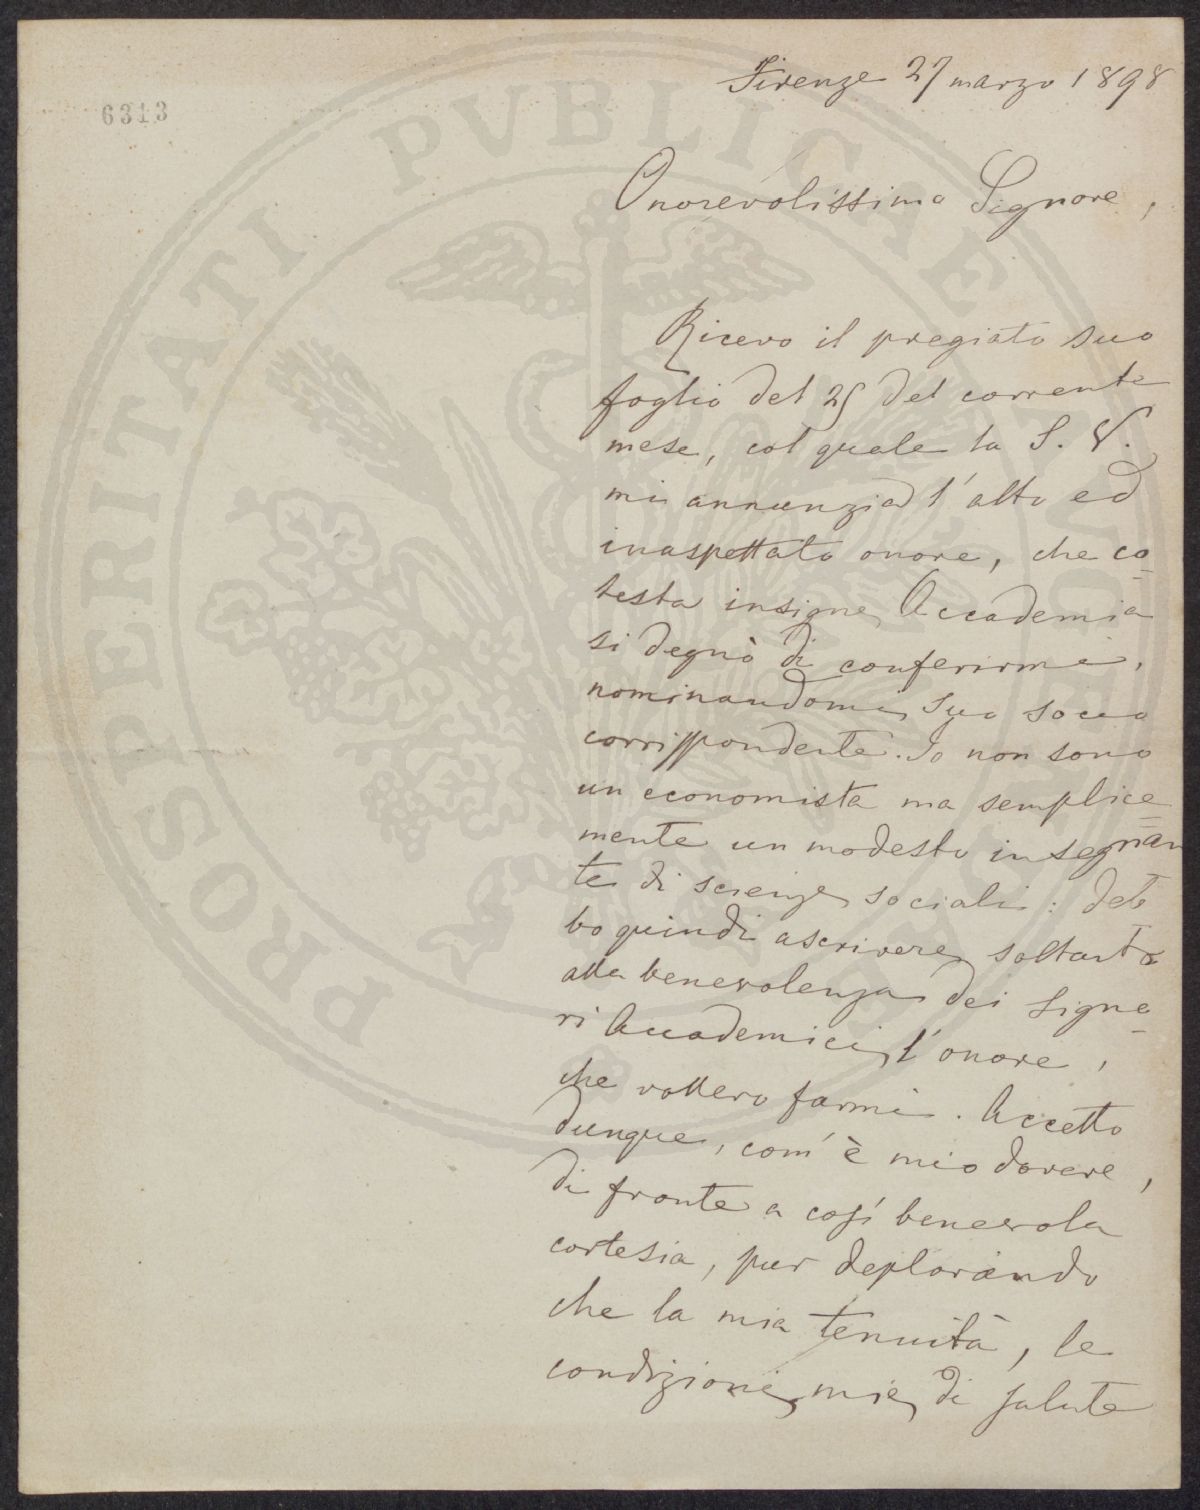 Firenze 27 marzo 1898
6313
Onorevolissimo Signore,
Ricevo il pregiato suo
foglio del 25 del corrente
mese, col quale la S. V.
mi annunzia l'alto ed
inaspettato onore, che co-
testa insigne Accademia
si degnò di conferirmi,
nominandomi suo socio
corrispondente. Io non sono
un economista ma semplice=
mente un modesto insegnan
te di scienze sociali: deb-
bo quindi ascrivere soltanto
alla benevolenza dei Signo-
ri Accademici l'onore,
che vollero farmi. Accetto
dunque, com'è mio dovere,
di fronte a così benevola
cortesia, pur deplorando
che la mia tenuità, le
condizioni mie di salute
PROSPERITATI PVBLICAE